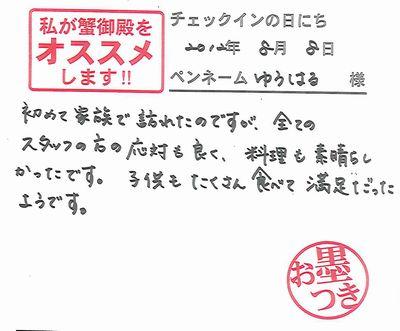 私が蟹御殿を
オススメ
します!!
チェックインの日にち
2012年 8月 8日
ペンネーム ゆうはる 様
初めて家族で訪れたのですが、全ての
スタッフの方の応対も良く、料理も素晴らし
かったです。 子供もたくさん食べて満足だった
ようです。
お墨
つき